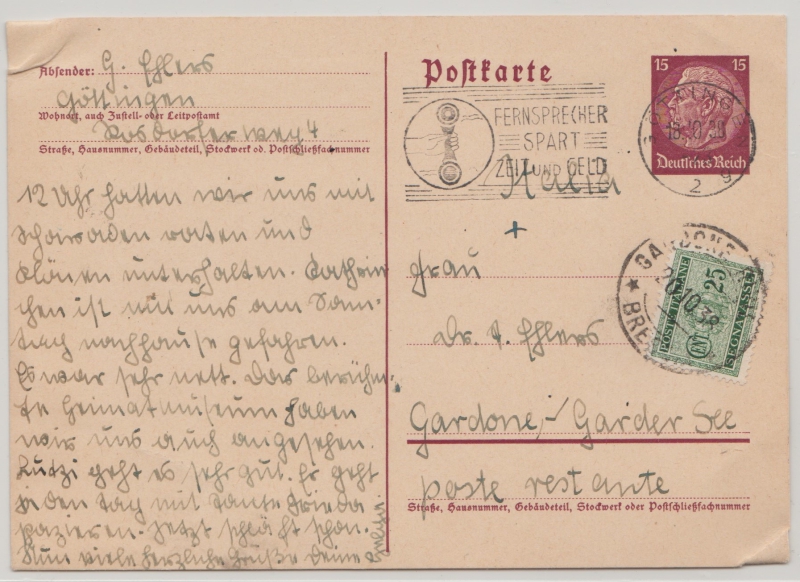 Absender: G. Ehlers
Göttingen
Wohnort, auch Zustell- oder Leitpostamt
Rosdorferweg 4
Straße, Hausnummer, Gebäudeteil, Stockwerk od. Postschließfachnummer
12 Uhr hatten wir uns mit
Scharaden raten und
Klönen unterhalten.
chen ist mit uns am Sonn-
tag nachhause gefahren.
Es war sehr nett. Das berühm-
te Heimatmuseum haben
wir uns auch angesehen.
geht es sehr gut. Er geht
jeden Tag mit Tante Frieda
spazieren. Jetzt schläft schon.
Nun viele herzliche Grüße Deine
Postkarte
15 15
Deutsches Reich
FERNSPRECHER
SPART
ZEIT UND GELD
18.10.
2 g
Italia
+
Frau
Dr. Ehlers
Gardone,-Garder See
poste restante
Straße, Hausnummer, Gebäudeteil, Stockwerk oder Postschließfachnummer
GARDONE
20.10.38
BRE
POSTE ITALIANE
25
CENT
SEGNATASSE